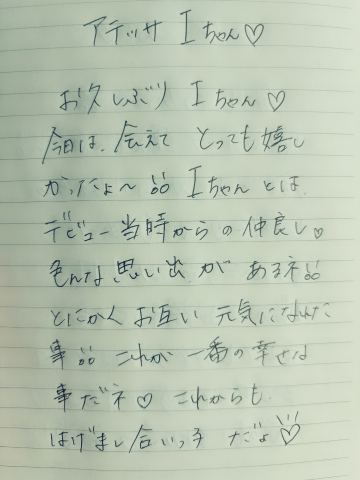 アテッサ Iちゃん♡
お久しぶり Iちゃん♡
今日は、会えて とっても嬉し
かったよ〜♪♪ Iちゃんとは、
デビュー当時からの仲良し♡
色んな思い出が あるネ♪♪
とにかくお互い 元気になれた
事♪♪ これが 一番の幸せな
事だネ♡ これからも
はげまし合いっ子 だよ♡